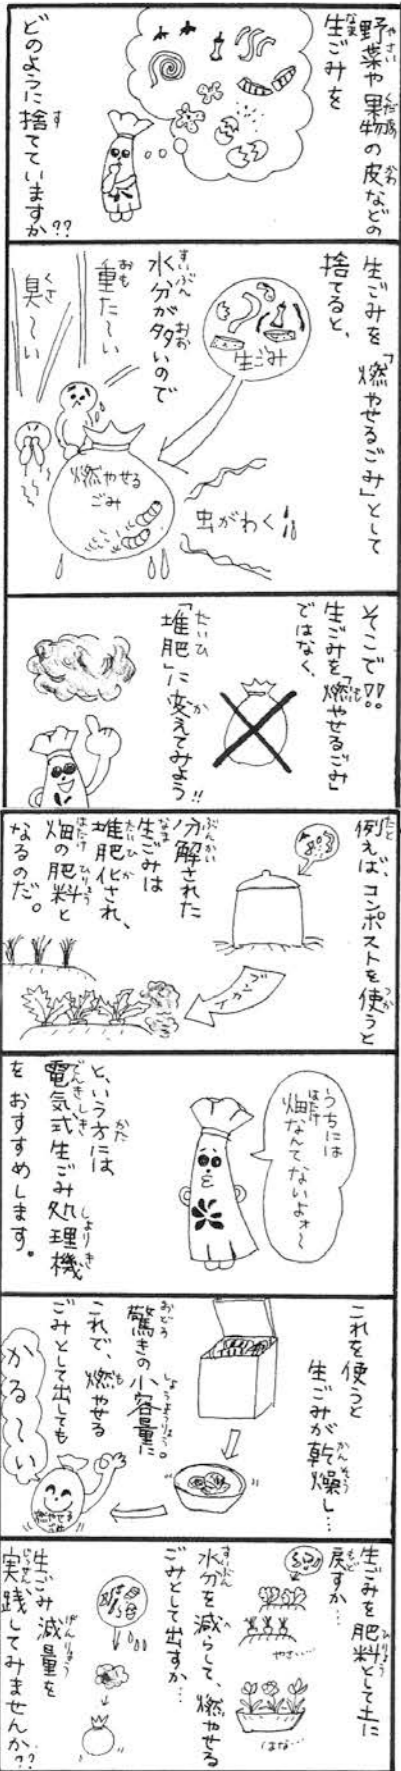 野菜や果物の皮などの
生ごみを
どのように捨てていますか??
生ごみを「燃やせるごみ」として
捨てると、
生ごみ
水分が多いので
重た～い
臭～い
燃やせる
ごみ
虫がわく!!
そこで!!
生ごみを「燃やせるごみ」
ではなく、
「堆肥」に変えてみよう!!
例えば、コンポストを使うと
ブンカイ
分解された
生ごみは
堆肥化され、
畑の肥料と
なるのだ。
うちには
畑なんてないよォ～
という方には
電気式生ごみ処理機
をおすすめします。
これを使うと
生ごみが乾燥し…
驚きの小容量に。
これで、燃やせる
ごみとして出しても
かる～い
燃やせる
生ごみを肥料として土に
戻すか…
やさい…
はな…
水分を減らして、燃やせる
ごみとして出すか…
生ごみ減量を
実践してみませんか??